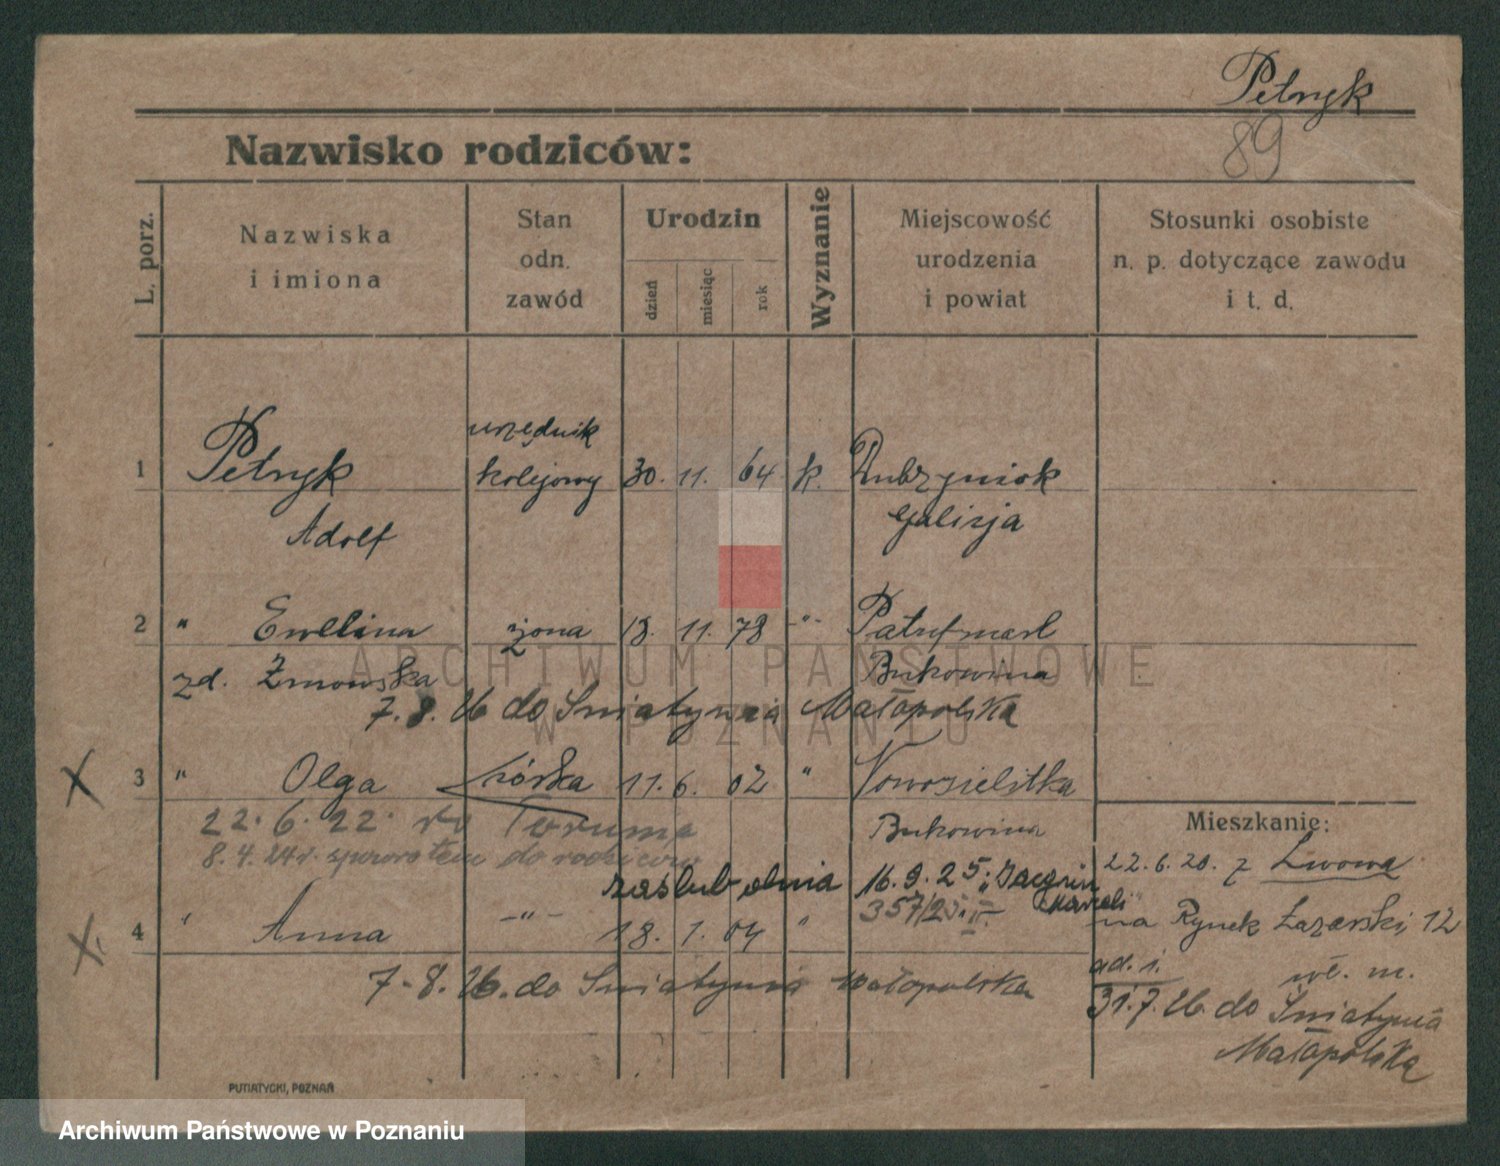 Petryk
89
Nazwisko rodziców:
L. porz.
Nazwiska
i imiona
Stan
odn.
zawód
Urodzin
dzień
miesiąc
rok
Wyznanie
Miejscowość
urodzenia
i powiat
Stosunki osobiste
n. p. dotyczące zawodu
i t. d.
urzędnik
1 Petryk kolejowy 30. 11. 64 k.
Adolf Galizja
2 " Ewelina żona 18. 11. 78 -"-
zd. Żmowska Bukowina
7.8.26 do Śniatynia Małopolska
3 " Olga córka 11. 6. 02 " Nowosielitka
22.6.22. do Torunia Bukowina
8.4.24r. spowrotem do rodziców
zaślub. dnia 16.9.25;
357/25. II
4 ' Anna -"- 18. 1. 04 "
7.8.26. do Śniatynia Małopolska
Mieszkanie:
22.6.20. z Lwowa
na Rynek Łazarski, 12
ad. 1. wł. m.
31.7.26. do Śniatynia
Małopolska
X
X
PUTIATYCKI, POZNAŃ
ARCHIWUM PAŃSTWOWE
W POZNANIU
Archiwum Państwowe w Poznaniu